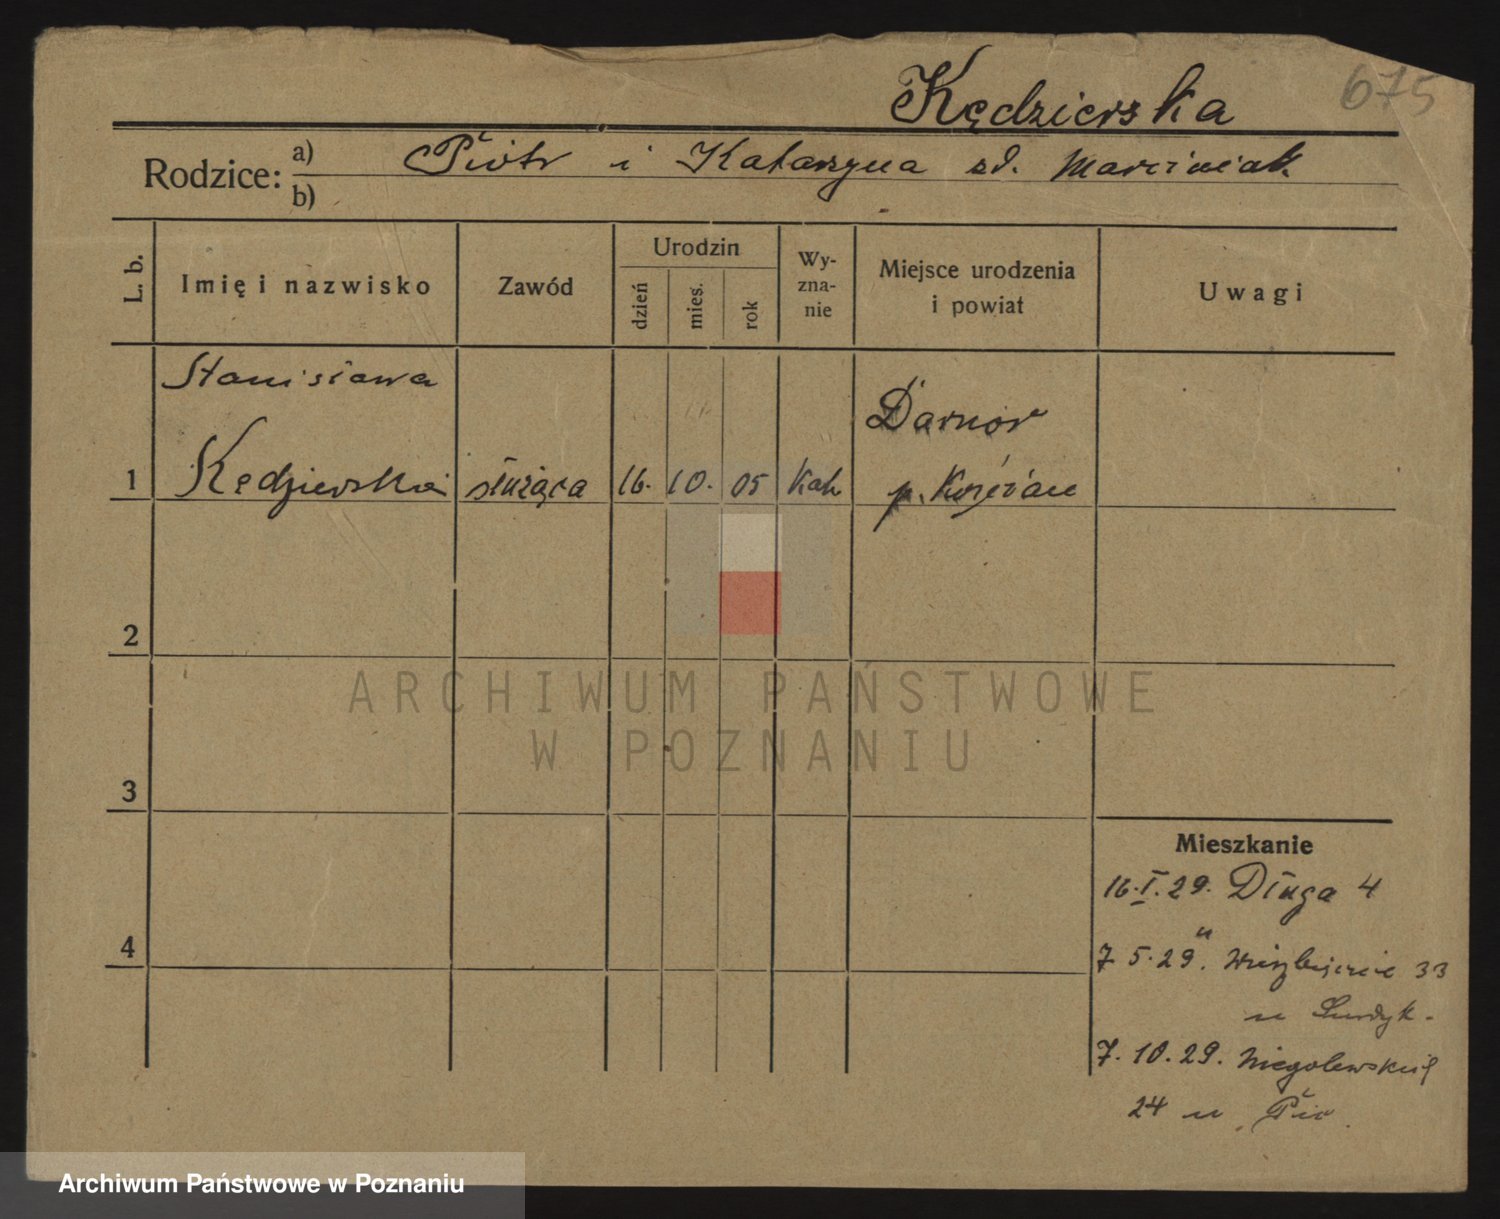 Kędzierska 675
Rodzice: a) Piotr i Katarzyna zd. Marciniak
b)
L. b. Imię i nazwisko Zawód Urodzin dzień mies. rok Wy-zna-nie Miejsce urodzenia i powiat Uwagi
Stanisława
Darnor
1 Kędzierska służąca 16. 10. 05 kat p. Kościan
2
ARCHIWUM PAŃSTWOWE
W POZNANIU
3
Mieszkanie
16.I.29. Długa 4
4
7 5.29. 33
u
7.10.29. Niegolewskich
24 u
Archiwum Państwowe w Poznaniu